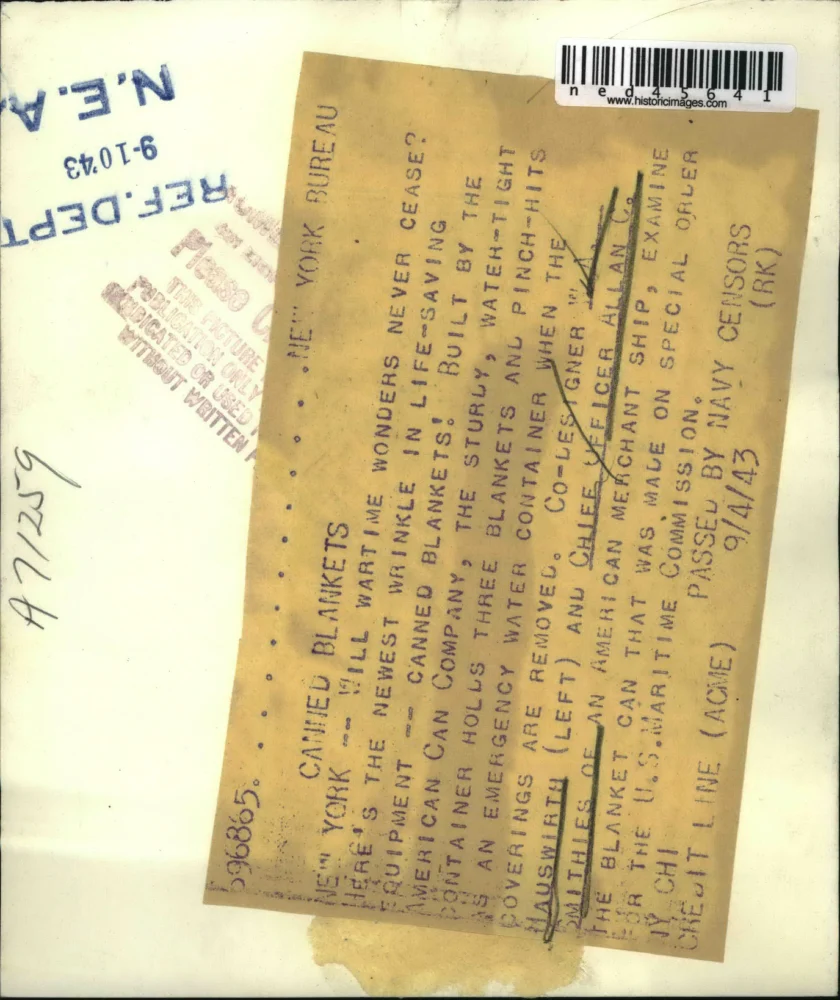 N.E.A.
9-10'43
REF.DEPT
Please
THIS PICTURE
PUBLICATION ONLY
DUPLICATED OR USED
WITHOUT WRITTEN
A71259
ned45641
www.historicimages.com
596865. . . . . . . . . . . . NEW YORK BUREAU
CANNED BLANKETS
NEW YORK -- WILL WARTIME WONDERS NEVER CEASE?
HERE'S THE NEWEST WRINKLE IN LIFE-SAVING
EQUIPMENT -- CANNED BLANKETS! BUILT BY THE
AMERICAN CAN COMPANY, THE STURDY, WATER-TIGHT
CONTAINER HOLDS THREE BLANKETS AND PINCH-HITS
AS AN EMERGENCY WATER CONTAINER WHEN THE
COVERINGS ARE REMOVED. CO-DESIGNER W.A.
HAUSWIRTH (LEFT) AND CHIEF OFFICER ALLAN C.
SMITHIES OF AN AMERICAN MERCHANT SHIP, EXAMINE
THE BLANKET CAN THAT WAS MADE ON SPECIAL ORDER
FOR THE U.S.MARITIME COMMISSION.
NY CHI PASSED BY NAVY CENSORS
CREDIT LINE (ACME) 9/4/43 (RK)